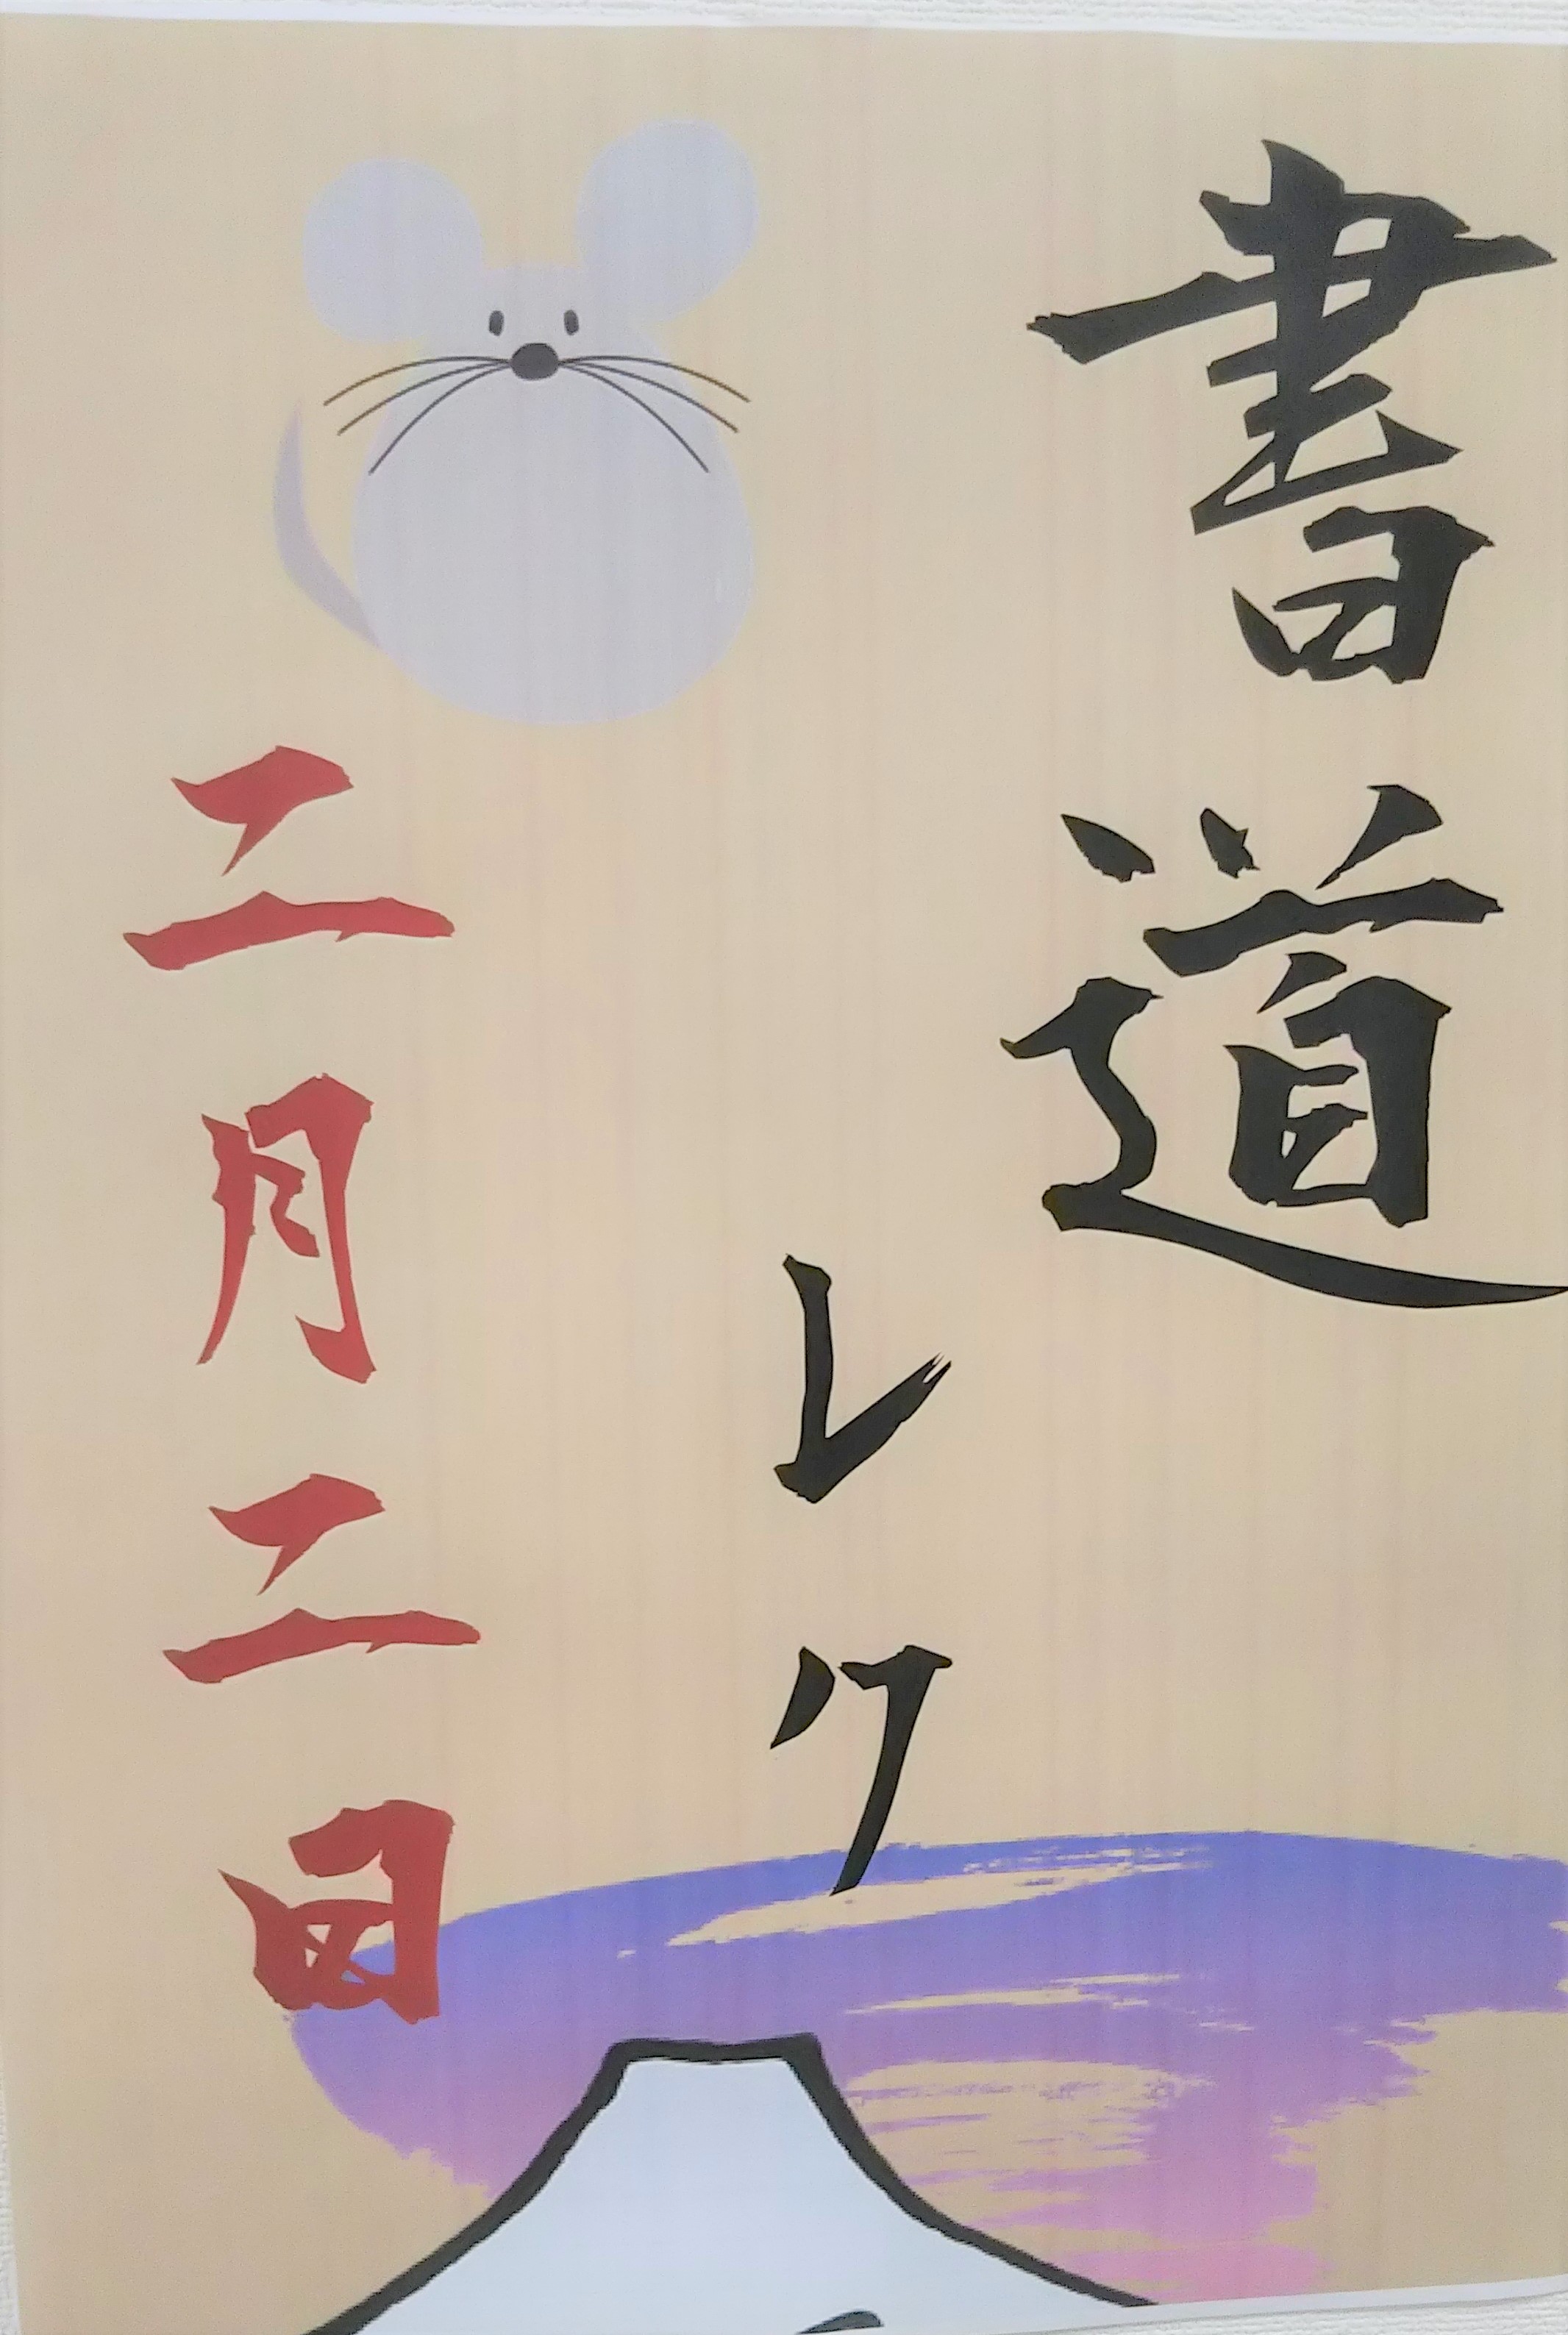 書道
レク
二月二日